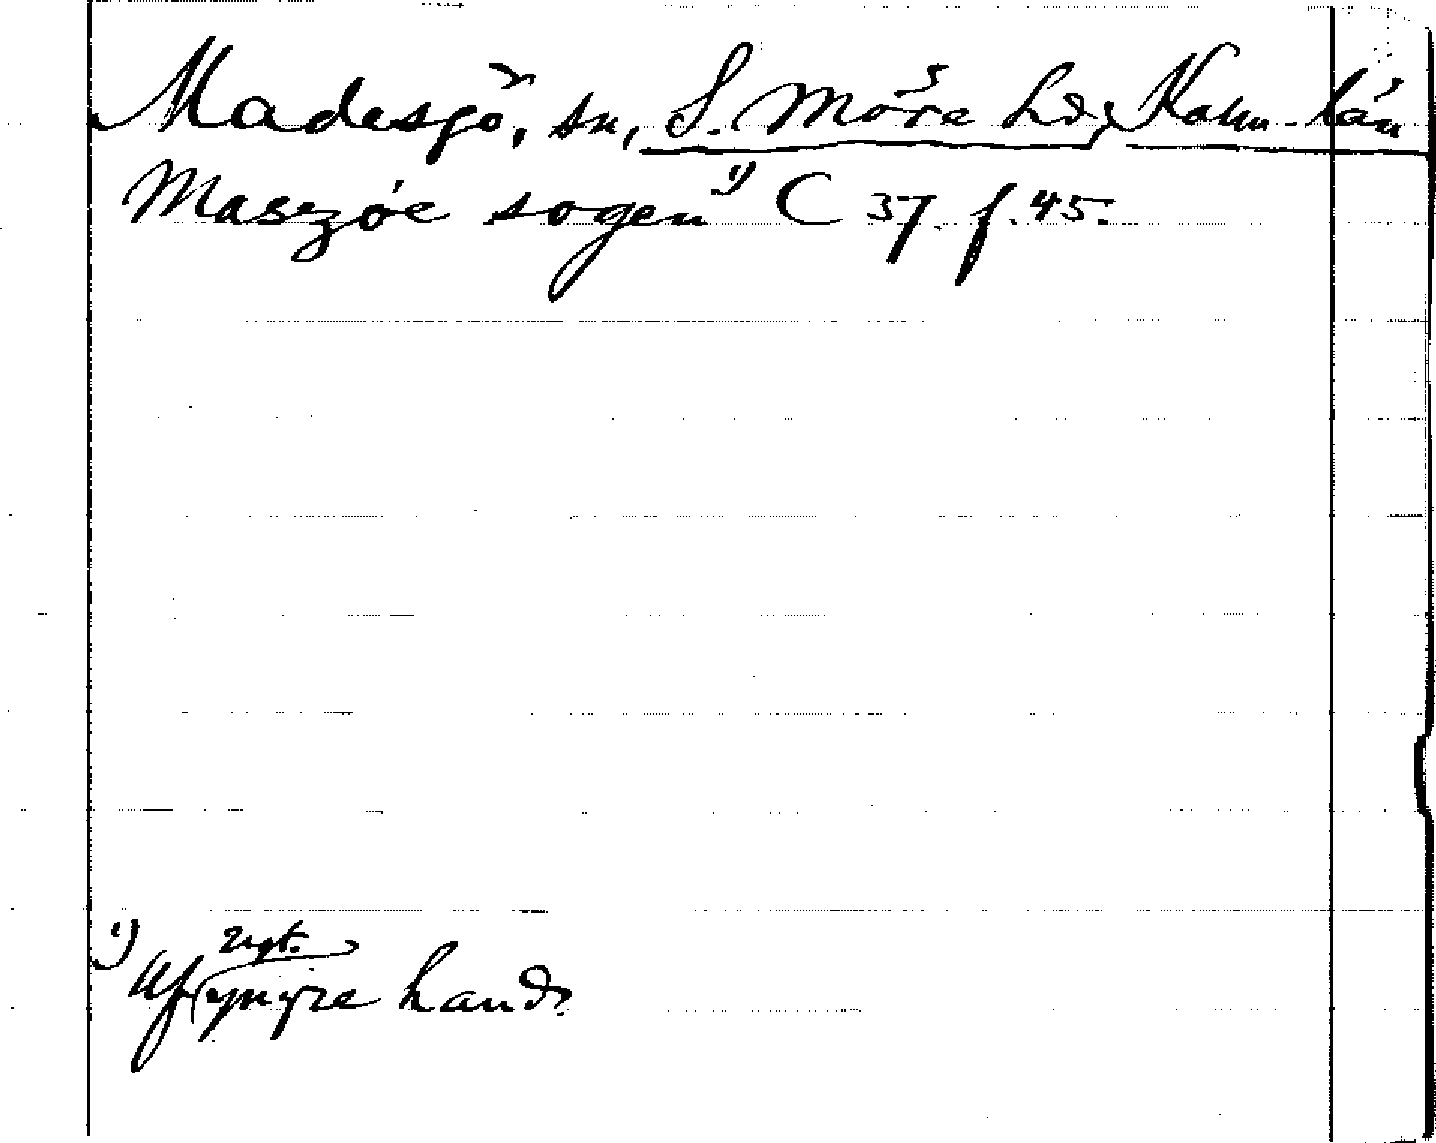 Madesjö, sn, S. Möre hd, Kalm. län
Maszóe sogen ¹⁾ C 37 f. 45.
¹⁾ Af ngt. yngre hand.